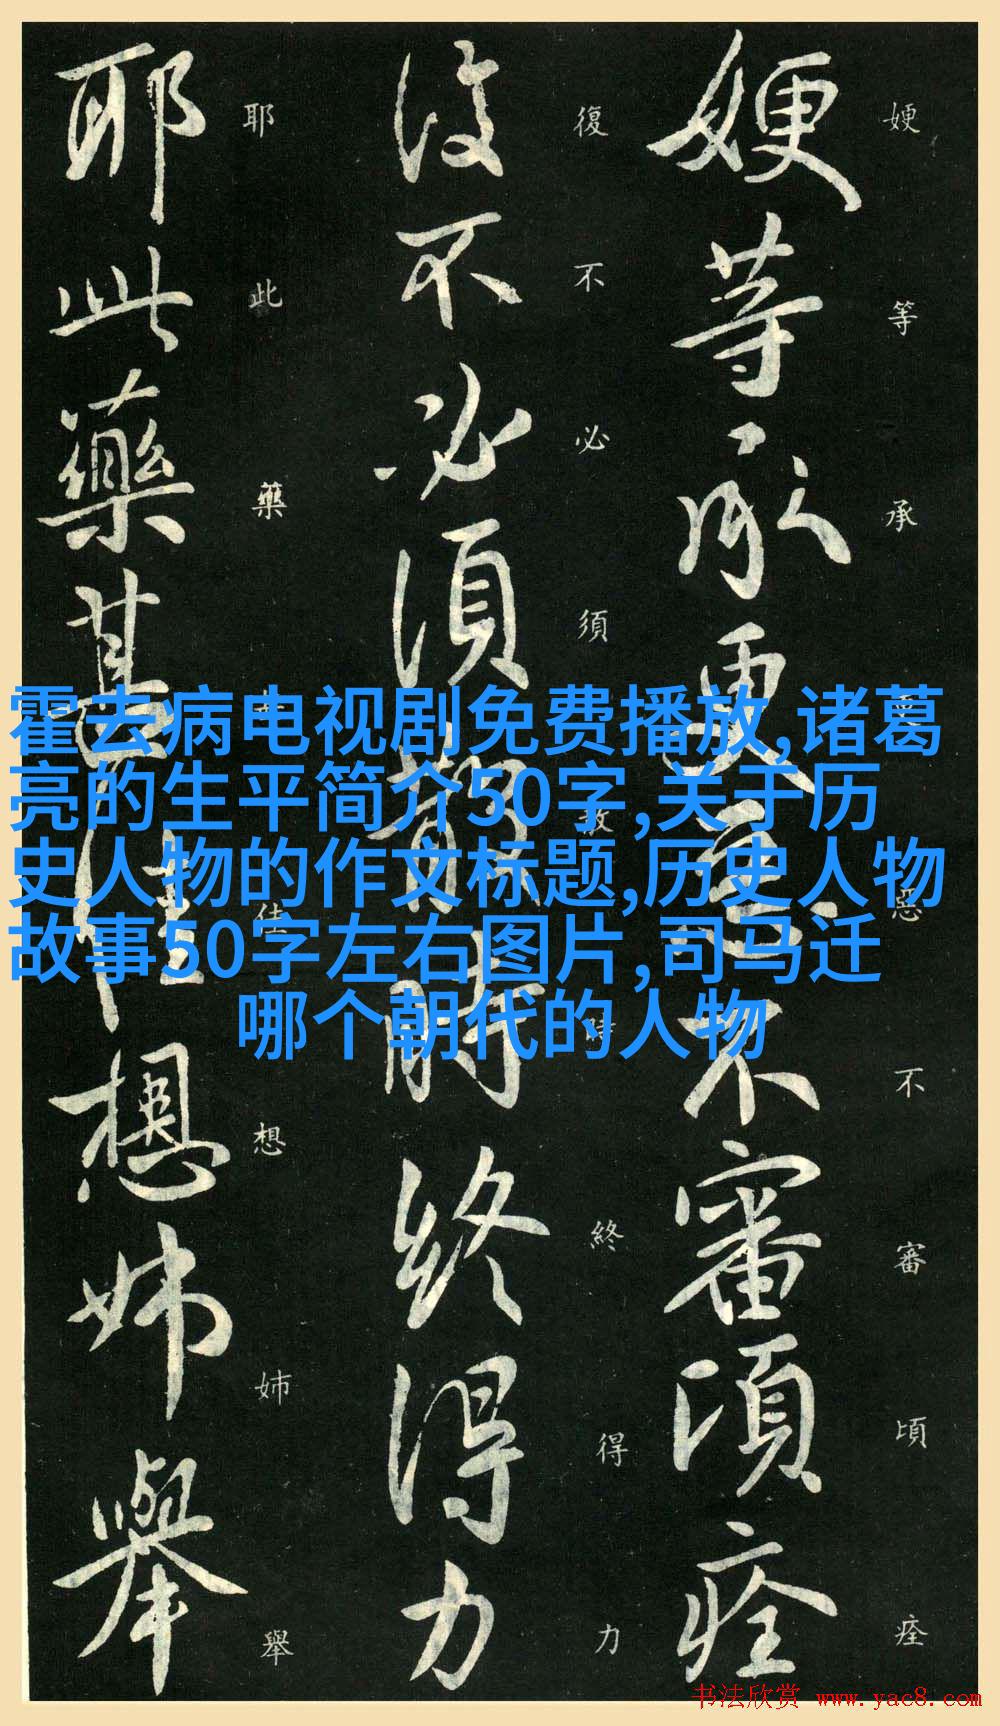 㛐等承更惡不審頃痊
㛐等承更惡不審頃痊
復不必須散時終得力
復不必須散時終得力
耶此藥甚佳想姊舉
耶此藥甚佳想姊舉
霍去病电视剧免费播放,诸葛
亮的生平简介50字,关于历
史人物的作文标题,历史人物
故事50字左右图片,司马迁
哪个朝代的人物
书法欣赏 www.yac8.com